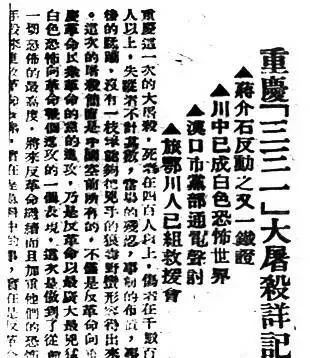 重慶「三三一」大屠殺詳記
▲蔣介石反動之又一鐵證
▲川中已成白色恐怖世界
▲漢口市黨部通電聲討
▲旅鄂川人已組救援會
重慶這一次的大屠殺,死者在四百人以上,傷者在千數百
人以上,失蹤者不計其數,當場的殘忍,事制的布置,事
後的蹂躪,沒有一枝筆能夠把兇手的狼毒野蠻形容得出來
。這次的屠殺簡直是中國空前所有的,不僅是反革命向
慶革命民衆革命的黨的進攻,乃是反革命以最廣大最兇猛
白色恐怖向革命進攻的一個表現,這次是做到了從前
一切恐怖的最高度,將來反革命繼續而且加重他們的恐怖